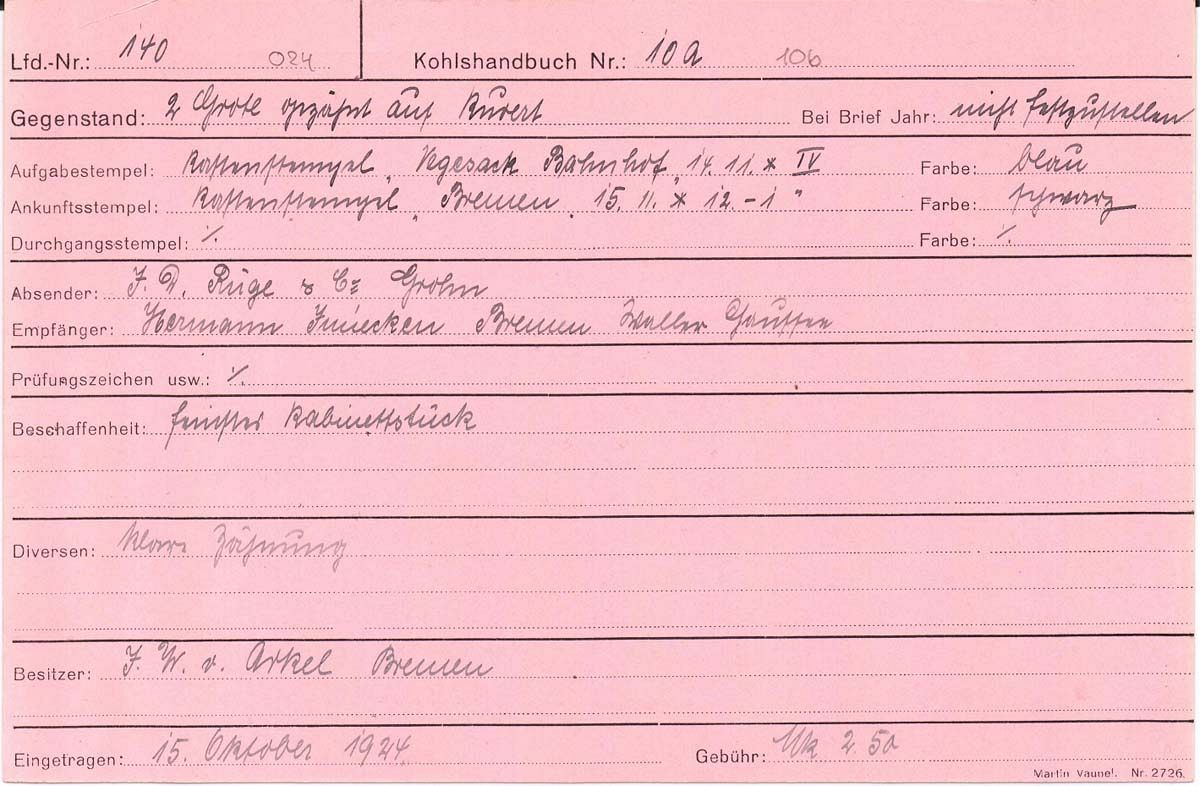 Lfd.-Nr.: 140 024 Kohlshandbuch Nr.: 10a 106
Gegenstand: 2 Grote gezähnt auf Kuvert Bei Brief Jahr: nicht festzustellen
Aufgabestempel: Kastenstempel „Vegesack Bahnhof„ 14. 11. * IV Farbe: blau
Ankunftsstempel: Kastenstempel „Bremen 15. 11. * 12.-1" Farbe: schwarz
Durchgangsstempel: ⁒. Farbe: ⁒.
Absender: F. D. Rüge & Co Grohn
Empfänger: Hermann Bremen Waller Chaussee
Prüfungszeichen usw.: ⁒.
Beschaffenheit: feinstes Kabinettstück
Diversen: klare Zähnung
Besitzer: F. W. v. Arkel Bremen
Eingetragen: 15. Oktober 1924. Gebühr: Mk 2.50
Martin Vaupel. Nr. 2726.